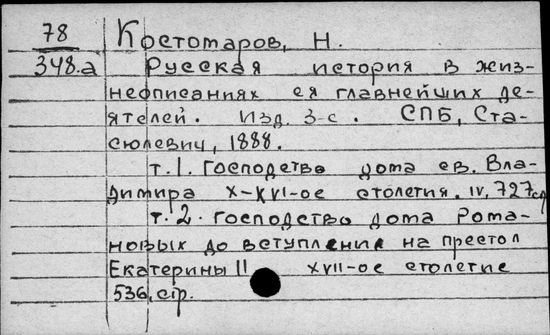 78 Костомаров, Н.
348.а Русская история в жиз-
неописаниях ея главнейших де-
ятелей. Изд. 3-е. СПБ, Ста-
сюлевич, 1888.
т. 1. Господство дома св. Вла-
димира X-XVI-ое столетия. IV, 727 стр
т. 2. Господство дома Рома-
новых до вступления на престол
Екатерины II XVII-ое столетие
536, стр.